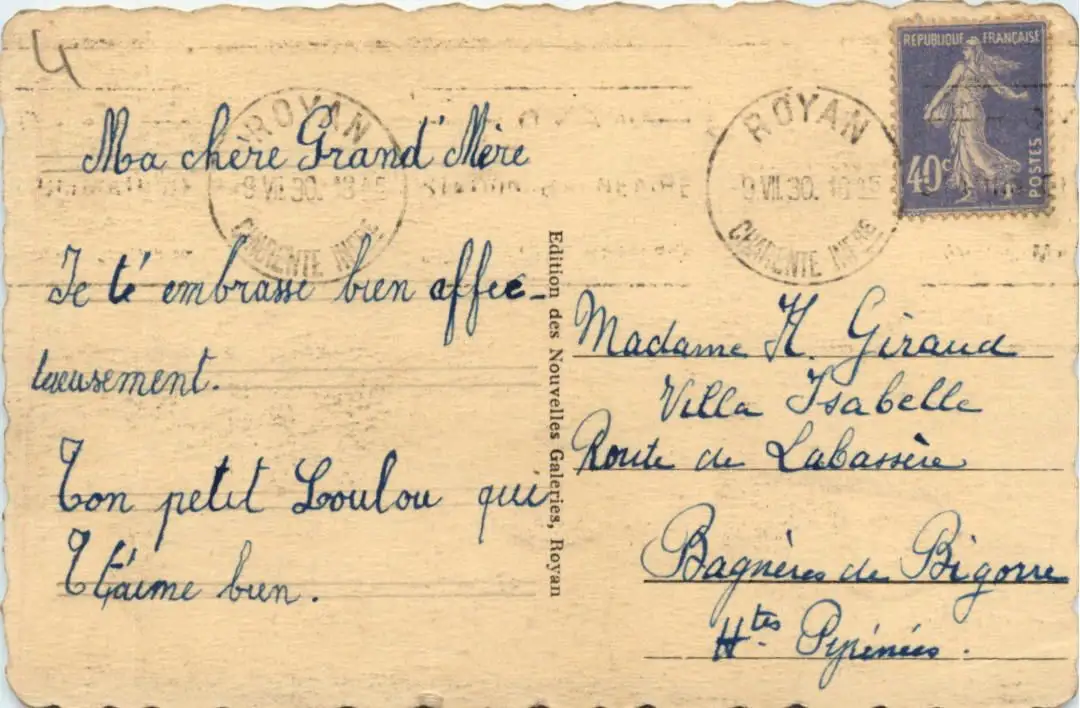 4
REPUBLIQUE FRANÇAISE
40c
POSTES
ROYAN
9 VII.30. 18 45
CHARENTE INFRE
ROYAN
9 VII.30. 18 45
CHARENTE INFRE
Ma chère Grand' Mère
Je t'é embrasse bien affec-
tueusement.
Ton petit Loulou qui
t'aime bien.
Edition des Nouvelles Galeries, Royan
Madame H. Giraud
Villa Isabelle
Route de Labassère
Bagnères de Bigorre
Htes Pyrénées.